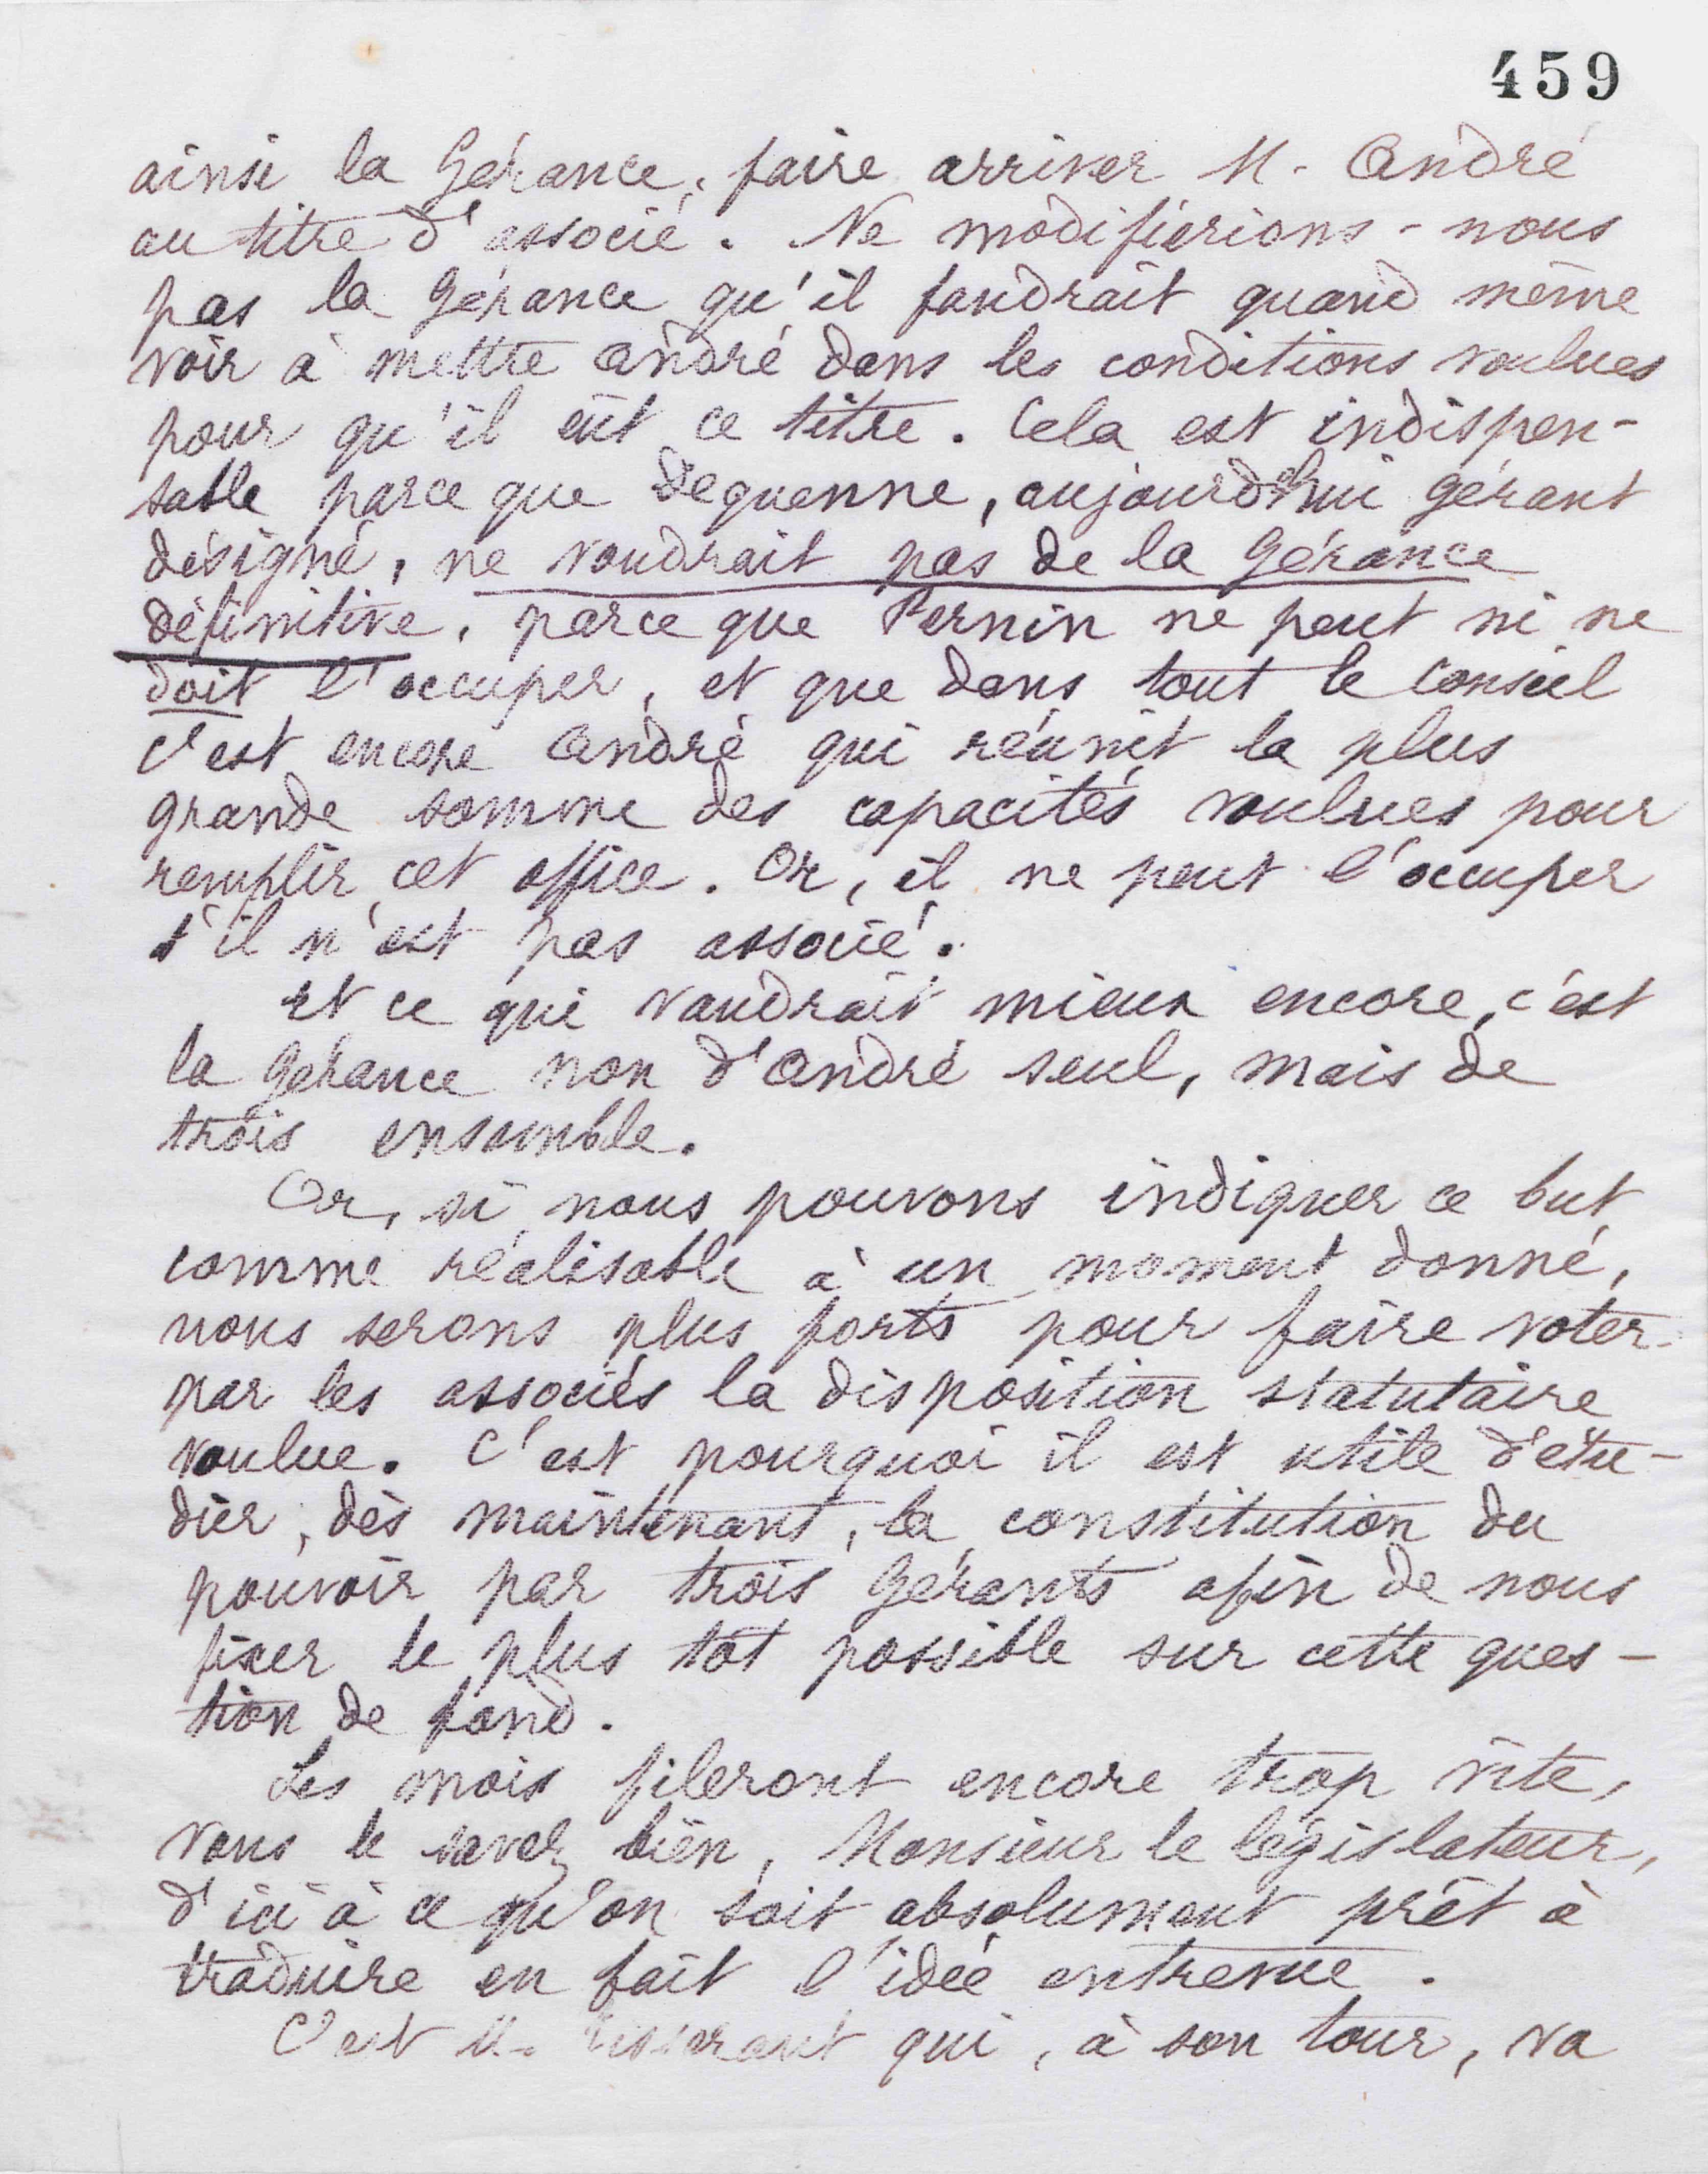 459
ainsi la Gérance, faire arriver M. André
au titre d'associé. Ne modifierions-nous
pas la Gérance qu'il faudrait quand même
voir à mettre André dans les conditions voulues
pour qu'il eût ce titre. Cela est indispen-
sable parce que Dequenne, aujourd'hui gérant
désigné, ne voudrait pas de la Gérance
définitive, parce que Pernin ne peut ni ne
doit l'occuper, et que dans tout le Conseil
c'est encore André qui réunit la plus
grande somme des capacités voulues pour
remplir cet office. Or, il ne peut l'occuper
s'il n'est pas associé.
Et ce qui vaudrait mieux encore, c'est
la Gérance non d'André seul, mais de
trois ensemble.
Or, si nous pouvons indiquer ce but
comme réalisable à un moment donné,
nous serons plus forts pour faire voter
par les associés la disposition statutaire
voulue. C'est pourquoi il est utile d'étu-
dier, dès maintenant, la constitution du
pouvoir par trois Gérants afin de nous
fixer le plus tôt possible sur cette ques-
tion de fond.
Les mois fileront encore trop vite,
vous le savez bien, Monsieur le législateur,
d'ici à ce qu'on soit absolument prêt à
traduire en fait l'idée entrevue.
C'est M. qui, à son tour, va